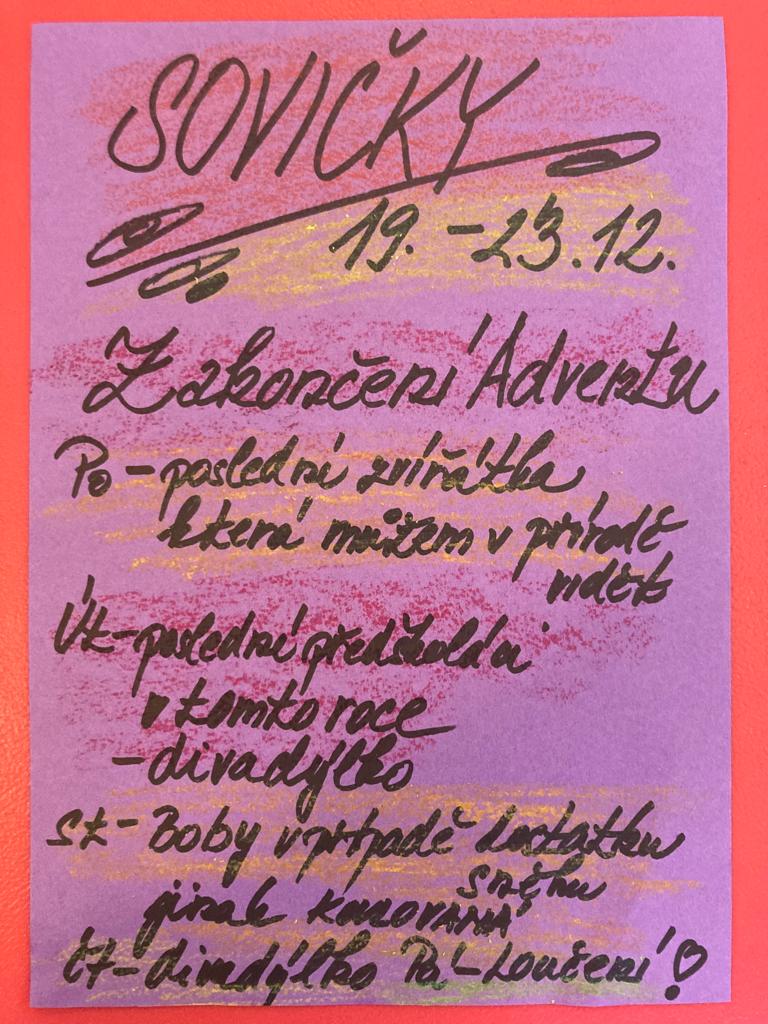 SOVIČKY
19. - 23.12.
Zakončení Adventu
Po - poslední zvířátka
která můžem v přírodě
vidět
Út - poslední předškoláci
v tomto roce
- divadýlko
St - Boby v případě dostatku
sněhu
jinak koulovaná
Čt - divadýlko Pá - Loučení!